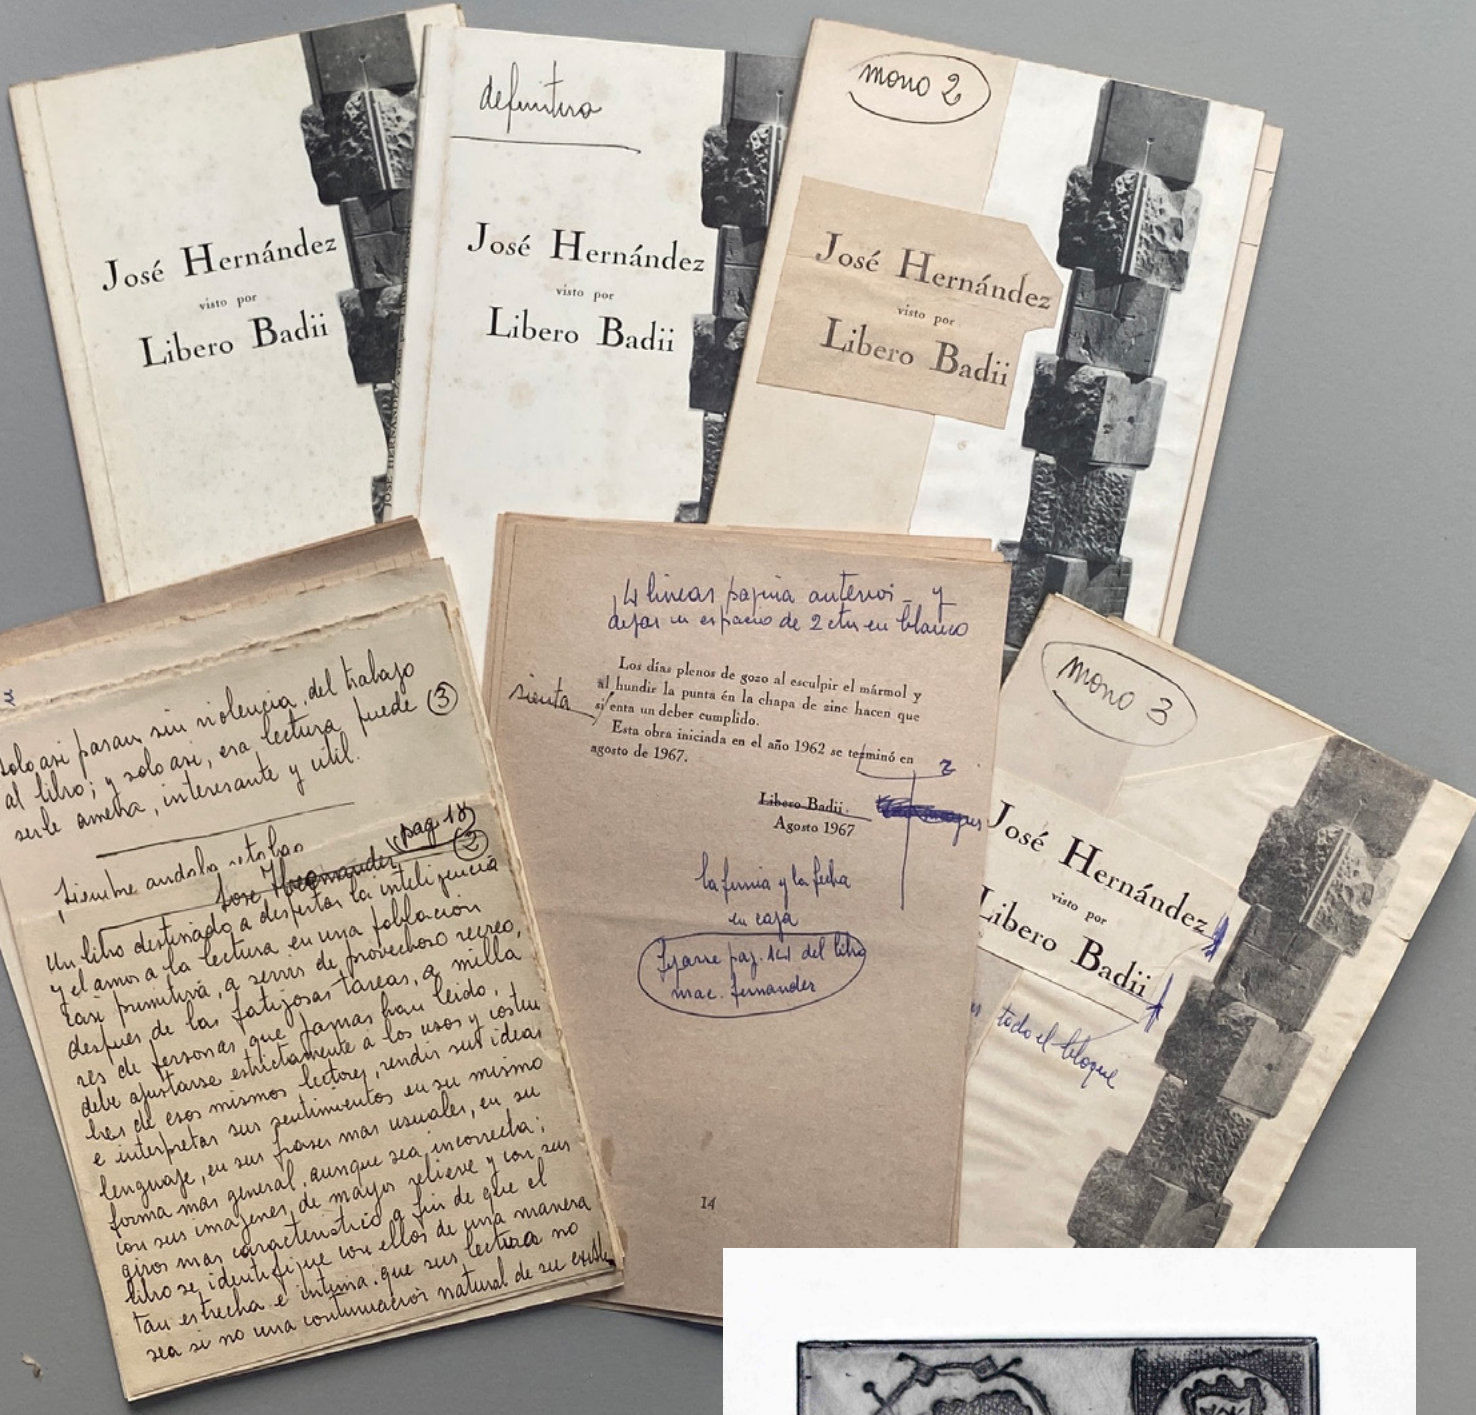 José Hernández
visto por
Libero Badii
definitiva
José Hernández
visto por
Libero Badii
mono 2
José Hernández
visto por
Libero Badii
solo asi pasan sin violencia del trabajo
al libro; y solo asi, esa lectura puede (3)
serle amena, interesante y util.
siempre andaba retobao
Jose Hernandez pag. 18
(2)
Un libro destinado a despertar la inteligencia
y el amor a la lectura en una poblacion
casi primitiva, a servir de provechoso recreo,
despues de las fatigosas tareas, a milla
res de personas que jamas han leido,
debe ajustarse estrictamente a los usos y costum
bres de esos mismos lectores, rendir sus ideas
e interpretar sus sentimientos en su mismo
lenguaje, en sus frases mas usuales, en su
forma mas general, aunque sea incorrecta;
con sus imagenes de mayor relieve y con sus
giros mas caracteristico a fin de que el
libro se identifique con ellos de una manera
tan estrecha e intima, que sus lectura no
sea si no una continuacion natural de su existen
4 lineas pagina anterior y
dejar un espacio de 2 ctm en blanco
Los días plenos de gozo al esculpir el mármol y
al hundir la punta én la chapa de zinc hacen que
sienta
si enta un deber cumplido.
Esta obra iniciada en el año 1962 se terminó en
agosto de 1967.
Libero Badii
Agosto 1967
la firma y la fecha
en caja
Fijarse pag. 141 del libro
mac. fernandez
14
mono 3
José Hernández
visto por
Libero Badii
todo el bloque